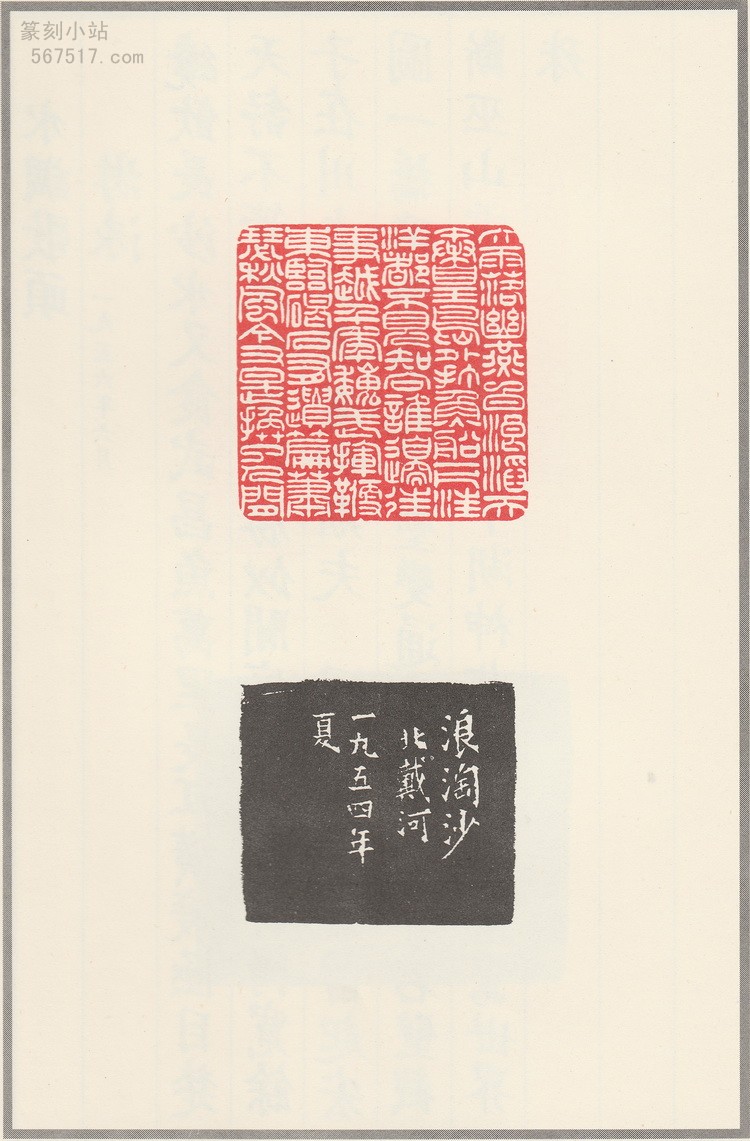 篆刻小站
567517.com
大雨落幽燕白浪滔天
秦皇島外打魚船一片汪
洋都不見知向誰邊往
事越千年魏武揮鞭
東臨碣石有遺篇蕭
瑟秋風今又是換了人間
浪淘沙
北戴河
一九五四年
夏